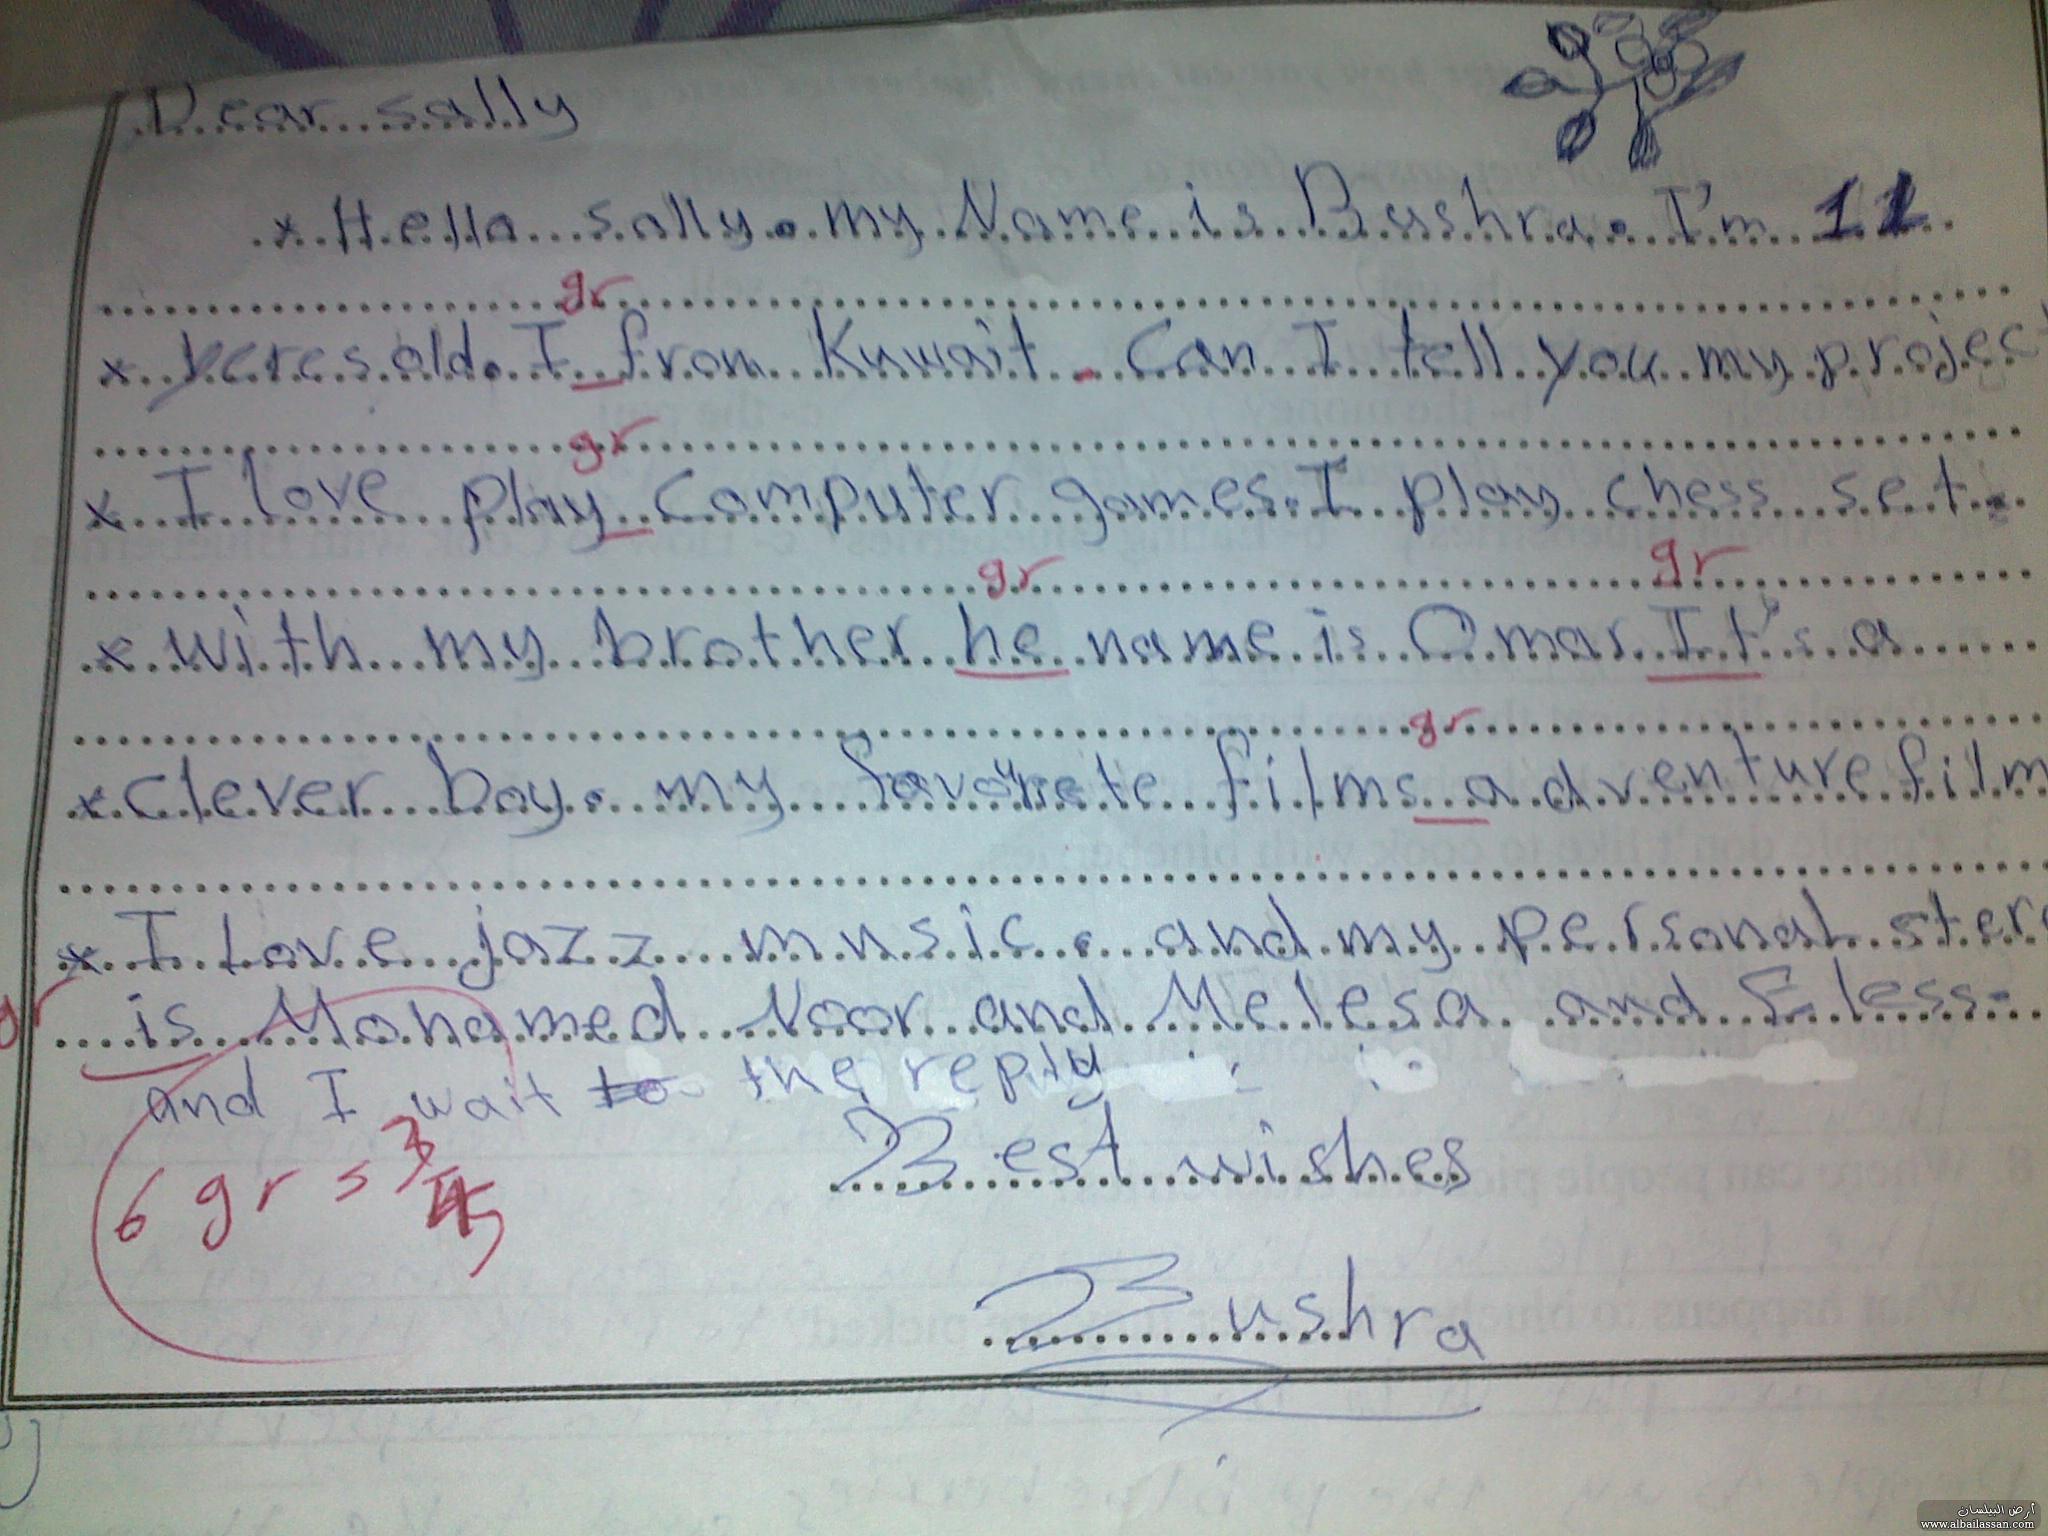 Dear sally
x Hello sally. my Name is Bushra. I'm 11
gr
x yeres old. I from Kuwait. Can I tell you my project
gr
x I love play Computer games. I play chess set.
gr gr
x with my brother he name is Omar It's a
gr
x clever boy. my favourete films adventure film
x I Love jazz music. and my personal stere
gr is Mohamed Noor and Melesa and Eless
and I wait to the reply
Best wishes
6 gr s 3/4 5
Bushra
أرض البيلسان
www.albailassan.com